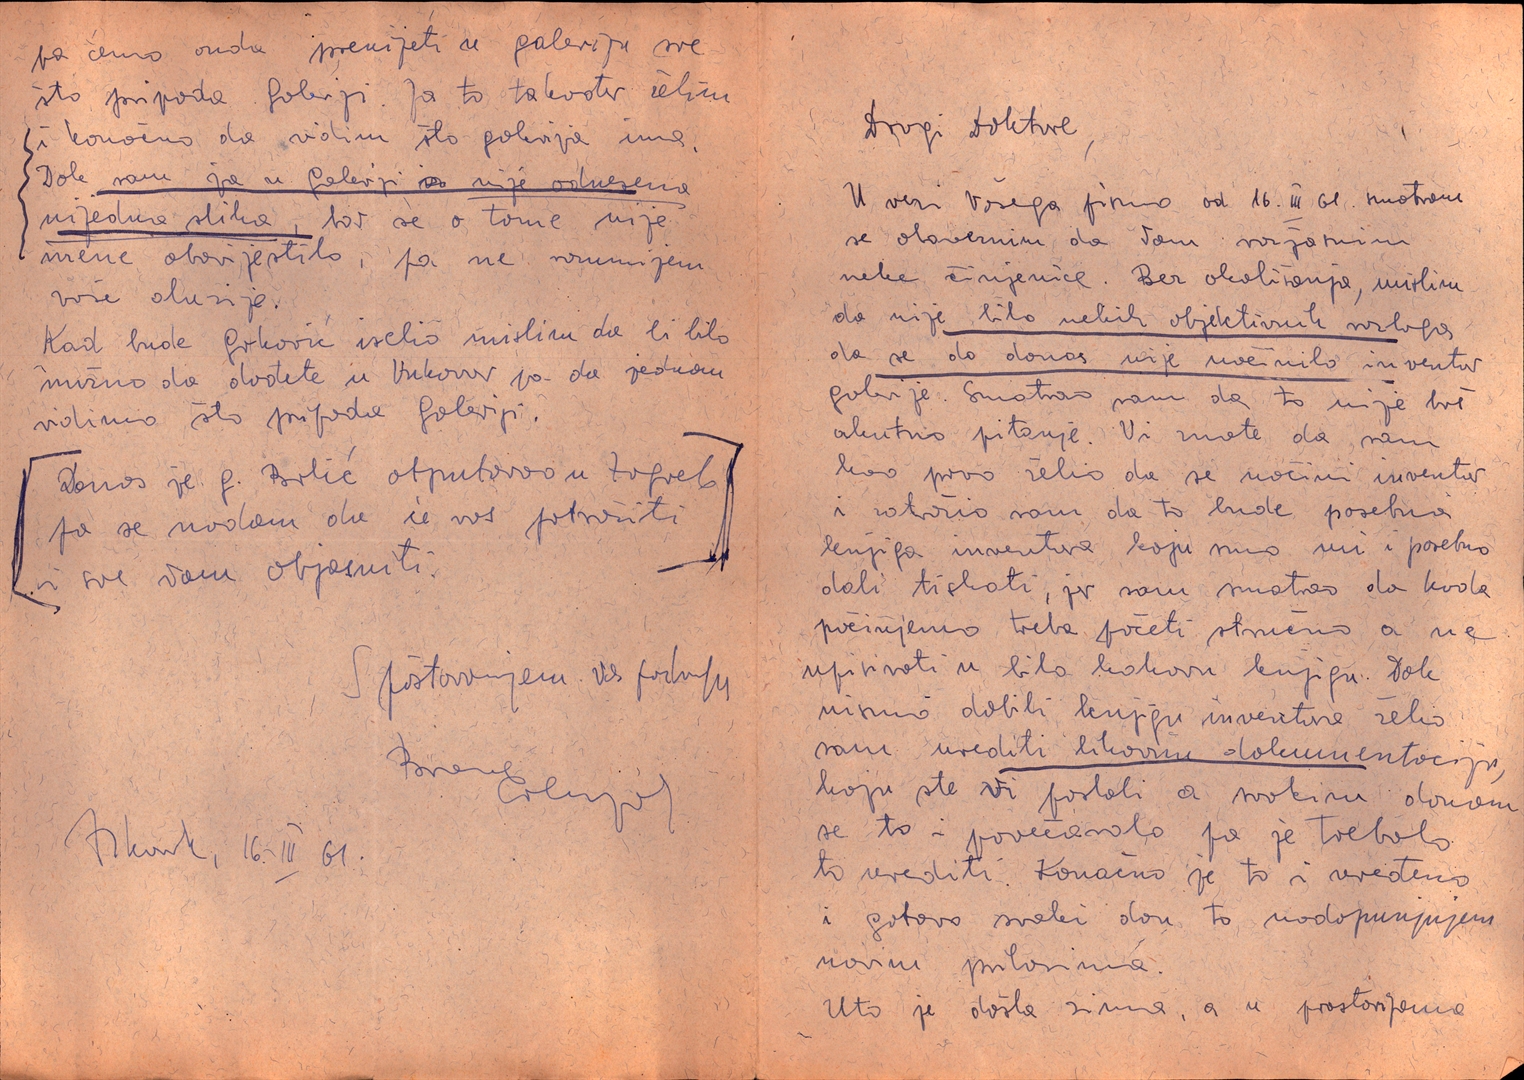 Dragi Doktore,
U vezi Vašega pisma od 16. III 61. smatram
se obaveznim da Vam razjasnim
neke činjenice. Bez okolišanja, mislim
da nije bilo nekih objektivnih razloga
da se do danas nije načinilo inventar
galerije. Smatrao sam da to nije baš
akutno pitanje. Vi znate da sam
kao prvo želio da se načini inventar
i zatražio sam da to bude posebna
knjiga inventara koju smo mi i posebno
dali tiskati, jer sam smatrao da kada
počinjemo treba početi stručno a ne
upisivati u bilo kakovu knjigu. Dok
nismo dobili knjigu inventara želio
sam urediti likovnu dokumentaciju,
koju ste vi poslali a svakim danom
se to i povećavalo pa je trebalo
to urediti. Konačno je to i uređeno
i gotovo svaki dan to nadopunjujem
novim prilozima.
Uto je došla zima, a u prostorijama
pa ćemo onda prenijeti u galeriju sve
što pripada Galeriji. Ja to također želim
i konačno da vidim što galerija ima.
Dok sam ja u Galeriji nije odnesena
nijedna slika, bar se o tome nije
mene obavijestilo, pa ne razumijem
vaše aluzije.
Kad bude Grković iselio mislim da bi bilo
nužno da dođete u Vukovar pa da jednom
vidimo što pripada Galeriji.
Danas je g. Brlić otputovao u Zagreb
pa se nadam da će vas potražiti
i sve Vam objasniti.
S poštovanjem Vas pozdravlja
16. III 61.